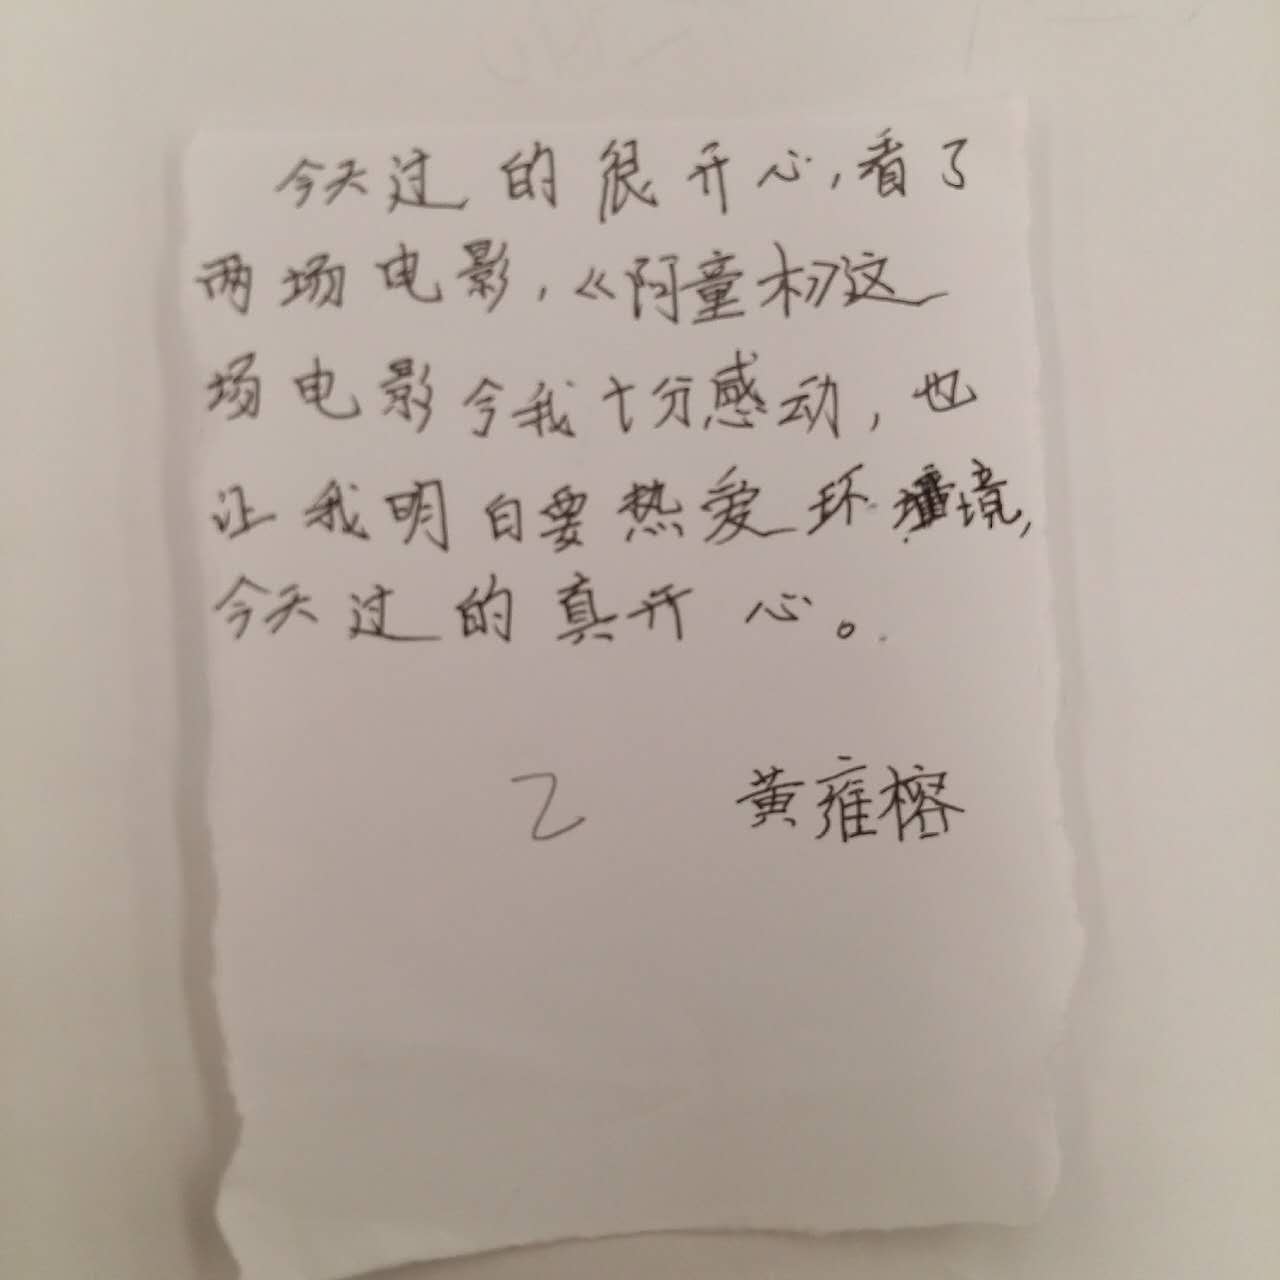 今天过的很开心,看了
两场电影,《阿童木》这
场电影令我十分感动,也
让我明白要热爱环境,
今天过的真开心。
乙 黄雍榕